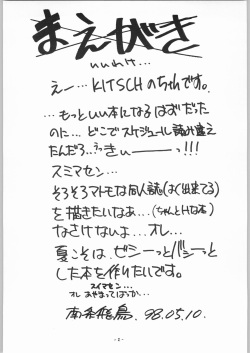 まえがき
いいわけ…
えー…KITSCHのちゃです。
…もっといい本になるはずだった
のに…どこでスケジュール読み違え
たんだろ…うっきぃーーっ!!!
スミマセン…
そろそろマトモな同人誌(はく出来てる)
を描きたいなぁ…(ちゃんとHな本)
なさけないょ…でも…
夏こそは、ゼシーっとバシーっと
した本を作りたいです。
スイマセン…
オレ あやまってばっか…
98.05.10.
-2-